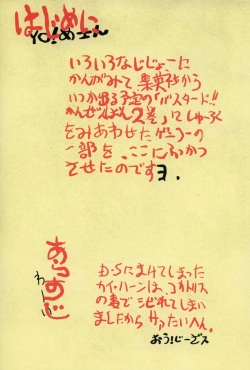 はじめに
YO!めーん
いろいろなじじょーに
かんがみて 集英社から
いつか出る予定の「バスタード!!
かんぜんばん2巻」にしゅーろく
をみあわせた ゲェーの
一部を、ここにふっかつ
させたのですヨ.
あらすじ
わーい
D・Sにまけてしまった
カイ・ハーンは、コカトリス
の毒でシビれてしまい
ましたから サァたいへん。
おう!じーざス